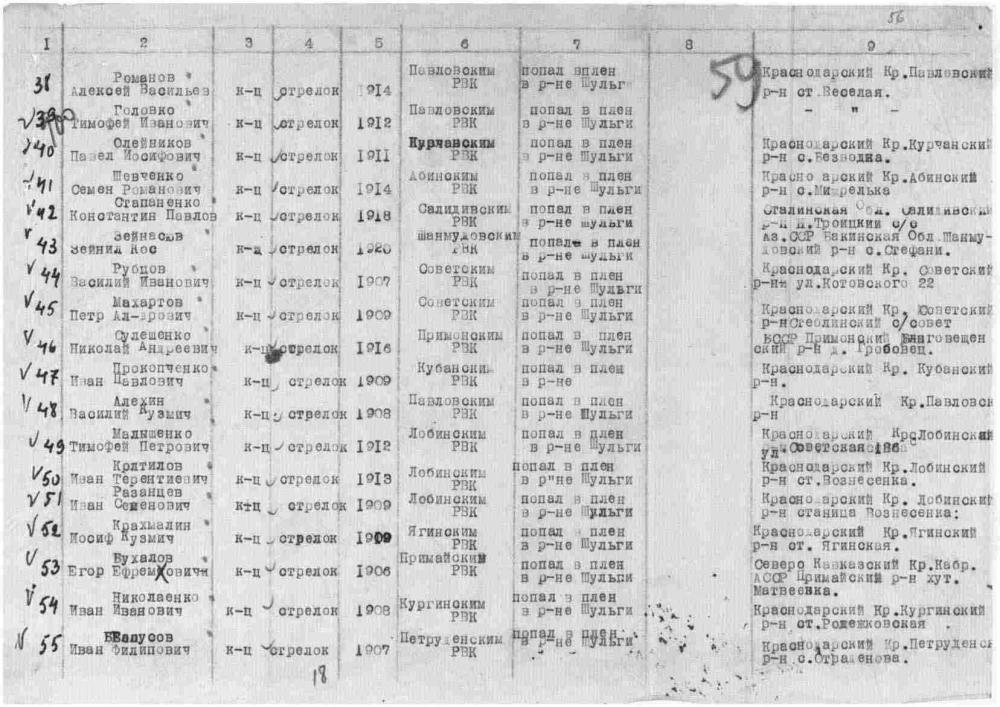 56
I 2 3 4 5 6 7 8 9
59
38 Романов Алексей Васильев к-ц стрелок 1914 Павловским РВК попал вплен в р-не Шульг Краснодарский Кр.Павловский р-н ст.Веселая.
39 Головко Тимофей Иванович к-ц стрелок 1912 Павловским РВК попал в плен в р-не Шульги - " -
40 Олейников Павел Иосифович к-ц стрелок 1911 Курчанским РВК попал в плен в р-не Шульги Краснодарский Кр.Курчанский р-н с.Безводка.
41 Шевченко Семен Романович к-ц стрелок 1914 Абинским РВК попал в плен в р-не Шульги Красно арский Кр.Абинский р-н с.Мишрелька
42 Стапаненко Константин Павлов к-ц стрелок 1918 Салидивским РВК попал в плен в р-не Шульги Сталинская Обл. Салидивским р-н Н.Троицкий с/с
43 Зейнасов Зейнил Кос к-ц стрелок 1920 Шанмудовским РВК попал в плен в р-не Шульги Аз.ССР Бакинская Обл.Шанму-довский р-н с.Стефани.
44 Рубцов Василий Иванович к-ц стрелок 1907 Советским РВК попал в плен в р-не Шульги Краснодарский Кр. Советский р-н ул.Котовского 22
45 Махартов Петр Ал-дрович к-ц стрелок 1909 Советским РВК попал в плен в р-не Шульги Краснодарский Кр. Советский р-н Стеблинский с/совет
46 Сулешенко Николай Андреевич к-ц стрелок 1916 Примонским РВК попал в плен в р-не Шульги БССР Примонский Благовещен ский р-н д. Гробовец.
47 Прокопченко Иван Павлович к-ц стрелок 1909 Кубански РВК попал в плен в р-не Краснодарский Кр. Кубанский р-н.
48 Алехин Василий Кузмич к-ц стрелок 1908 Павловским РВК попал в плен в р-не Шульги Краснодарский Кр.Павловск р-н
49 Малышенко Тимофей Петрович к-ц стрелок 1912 Лобинским РВК попал в плен в р-не Шульги Краснодарский Кр.Лобинский ул.Советская 186
50 Крлтилов Иван Терентиевич к-ц стрелок 1913 Лобинским РВК попал в плен в р"не Шульги Краснодарский Кр.Лобинский р-н ст.Вознесенка.
51 Разанцев Иван Семенович к-ц стрелок 1909 Лобинским РВК попал в плен в р-не Шульги Краснодарский Кр. Лобинский р-н станица Вознесенка;
52 Крахмалин Иосиф Кузмич к-ц стрелок 1909 Ягинским РВК попал в плен в р-не Шульги Краснодарский Кр.Ягинский р-н ст. Ягинская.
53 Бухалов Егор Ефремович к-ц стрелок 1906 Примайский РВК попал в плен в р-не Шульги Северо Кавказский Кр.Кабр. АССР Примайский р-н хут. Матвеевка.
54 Николаенко Иван Иванович к-ц стрелок 1908 Кургинским РВК попал в плен в р-не Шульги Краснодарский Кр.Кургинский р-н ст.Родежковская
55 Белоусов Иван Филипович к-ц стрелок 1907 Петруденским РВК попал в плен в р-не Шульги Краснодарский Кр.Петруденск р-н с.Отраденова.
18